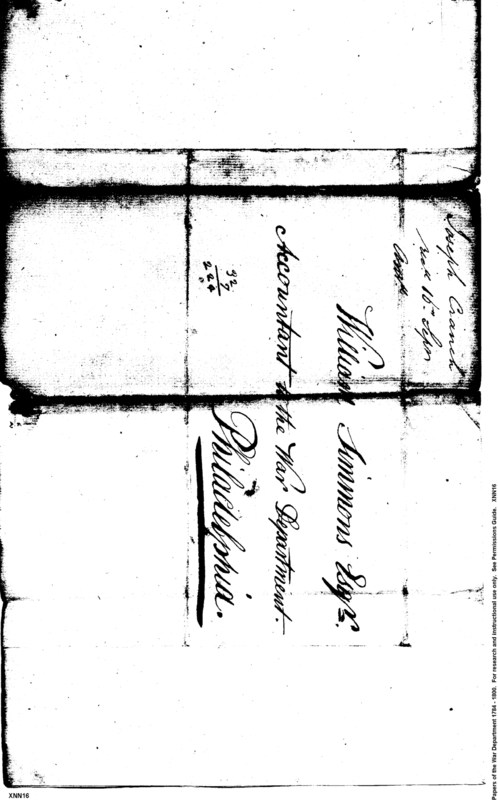 Joseph Cranch
recd 10th Sepr
William Simmons Esqr.
Accountant to the War Department.
Philadelphia.
32
7
224
XNN16
Papers of the War Department 1784 - 1800. For research and instructional use only. See Permissions Guide. XNN16